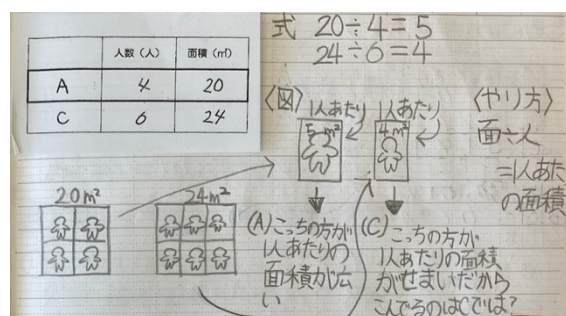 人数(人) 面積(㎡)
A 4 20
C 6 24
式 20÷4=5
24÷6=4
〈図〉
1人あたり 1人あたり
5m² 4m²
〈やり方〉
面÷人
=1人あた
の面積
20m² 24m²
(A)こっちの方が
1人あたりの
面積が広
い
(C)こっちの方が
1人あたりの面積
がせまいだから
こんでるのはCでは?